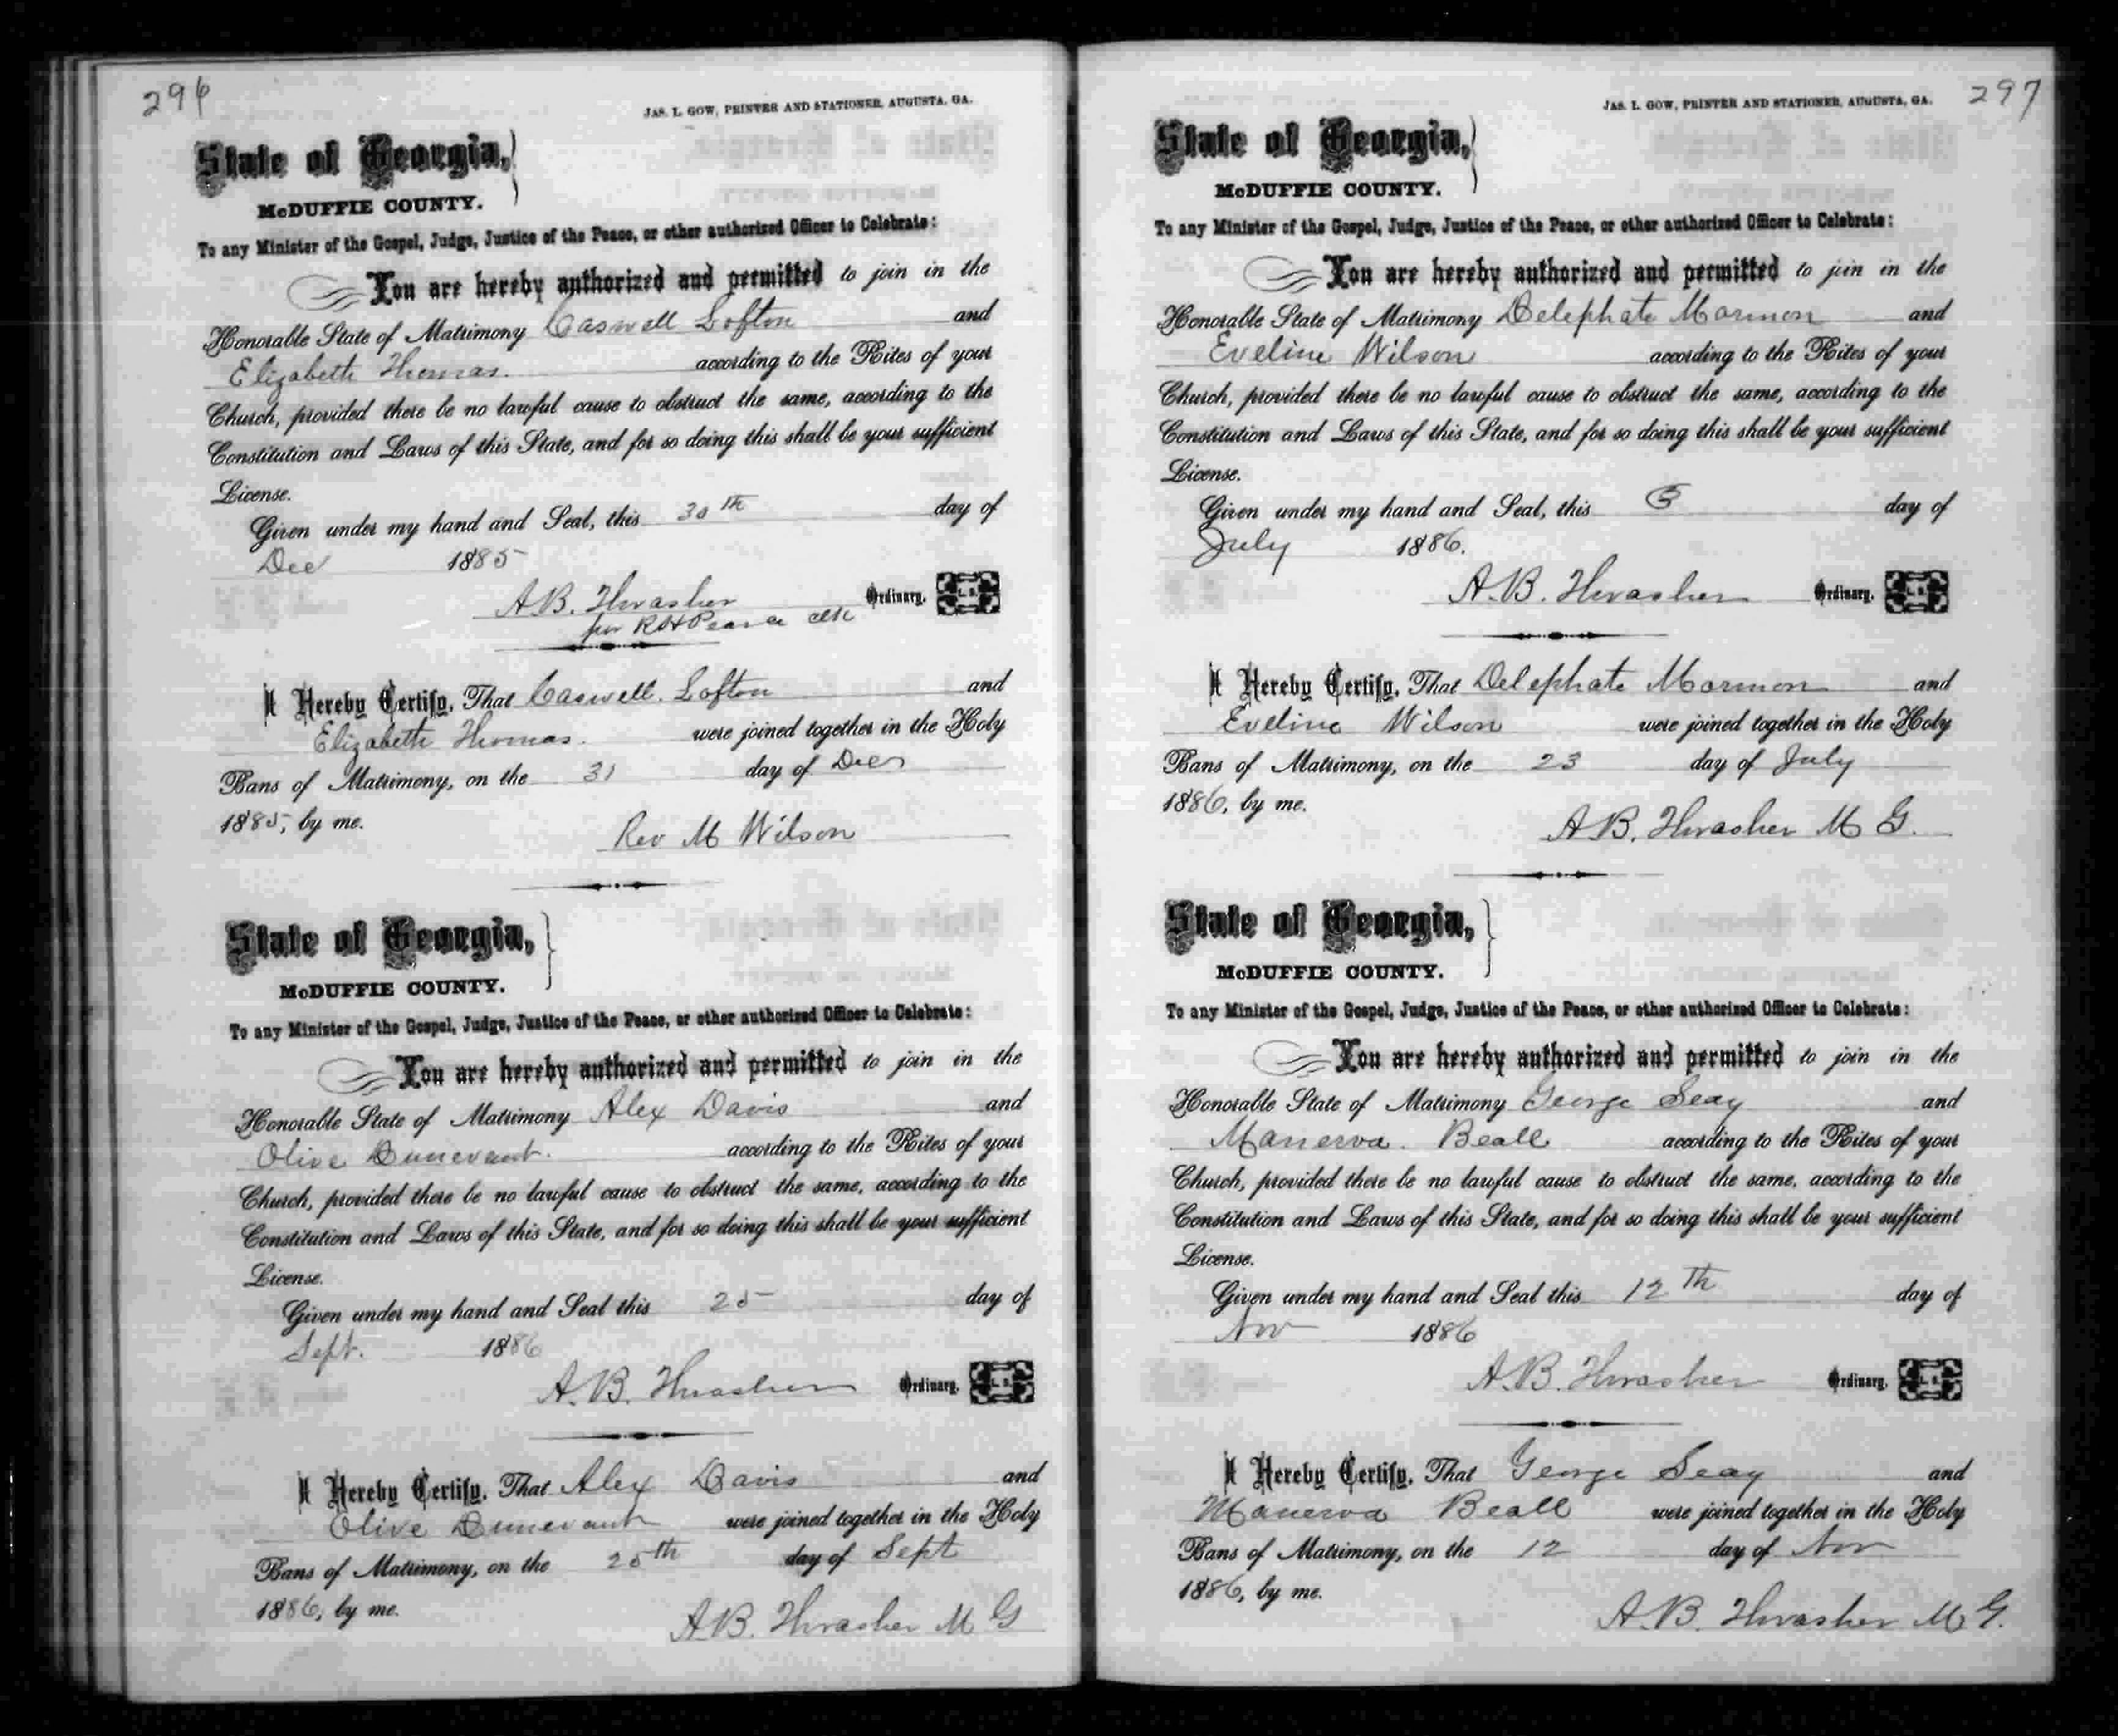 296
JAS. L. GOW, PRINTER AND STATIONER, AUGUSTA, GA.
State of Georgia,
McDUFFIE COUNTY.
To any Minister of the Gospel, Judge, Justice of the Peace, or other authorized Officer to Celebrate:
You are hereby authorized and permitted to join in the
Honorable State of Matrimony Caswell Lofton and
Elizabeth Thomas. according to the Rites of your
Church, provided there be no lawful cause to obstruct the same, according to the
Constitution and Laws of this State, and for so doing this shall be your sufficient
License.
Given under my hand and Seal, this 30th day of
Dec 1885
A.B. Thrasher Ordinary. L. S.
per R H Pearce clk
I Hereby Certify, That Caswell. Lofton and
Elizabeth Thomas. were joined together in the Holy
Bans of Matrimony, on the 31 day of Dec
1885, by me.
Rev M Wilson
State of Georgia,
McDUFFIE COUNTY.
To any Minister of the Gospel, Judge, Justice of the Peace, or other authorized Officer to Celebrate:
You are hereby authorized and permitted to join in the
Honorable State of Matrimony Alex Davis and
Olive Dunevant. according to the Rites of your
Church, provided there be no lawful cause to obstruct the same, according to the
Constitution and Laws of this State, and for so doing this shall be your sufficient
License.
Given under my hand and Seal this 25 day of
Sept. 1886
A.B. Thrasher Ordinary. L. S.
I Hereby Certify, That Alex Davis and
Olive Dunevant were joined together in the Holy
Bans of Matrimony, on the 25th day of Sept
1886, by me.
A.B. Thrasher M G
297
JAS. L. GOW, PRINTER AND STATIONER, AUGUSTA, GA.
State of Georgia,
McDUFFIE COUNTY.
To any Minister of the Gospel, Judge, Justice of the Peace, or other authorized Officer to Celebrate:
You are hereby authorized and permitted to join in the
Honorable State of Matrimony Delephate Mormon and
Eveline Wilson according to the Rites of your
Church, provided there be no lawful cause to obstruct the same, according to the
Constitution and Laws of this State, and for so doing this shall be your sufficient
License.
Given under my hand and Seal, this 3 day of
July 1886.
A.B. Thrasher Ordinary. L. S.
I Hereby Certify, That Delephate Mormon and
Eveline Wilson were joined together in the Holy
Bans of Matrimony, on the 23 day of July
1886, by me.
A.B. Thrasher M G.
State of Georgia,
McDUFFIE COUNTY.
To any Minister of the Gospel, Judge, Justice of the Peace, or other authorized Officer to Celebrate:
You are hereby authorized and permitted to join in the
Honorable State of Matrimony George Seay and
Manerva. Beall according to the Rites of your
Church, provided there be no lawful cause to obstruct the same, according to the
Constitution and Laws of this State, and for so doing this shall be your sufficient
License.
Given under my hand and Seal this 12th day of
Nov 1886
A.B. Thrasher Ordinary. L. S.
I Hereby Certify, That George Seay and
Manerva Beall were joined together in the Holy
Bans of Matrimony, on the 12 day of Nov
1886, by me.
A.B. Thrasher M G.